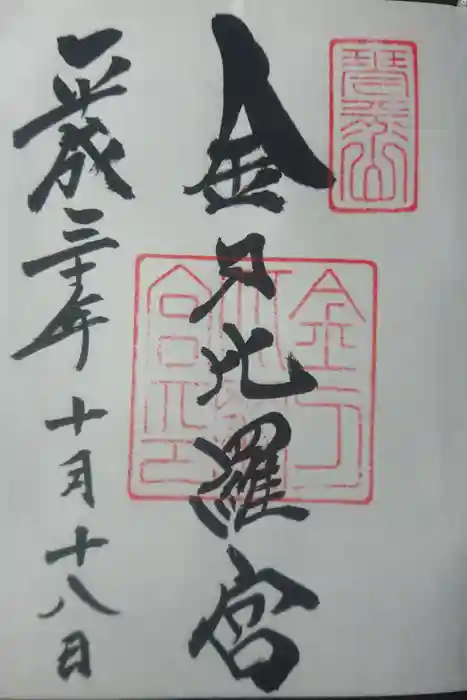 琴平山
金刀比羅宮
金刀
比羅
宮印
平成三十年十月十八日